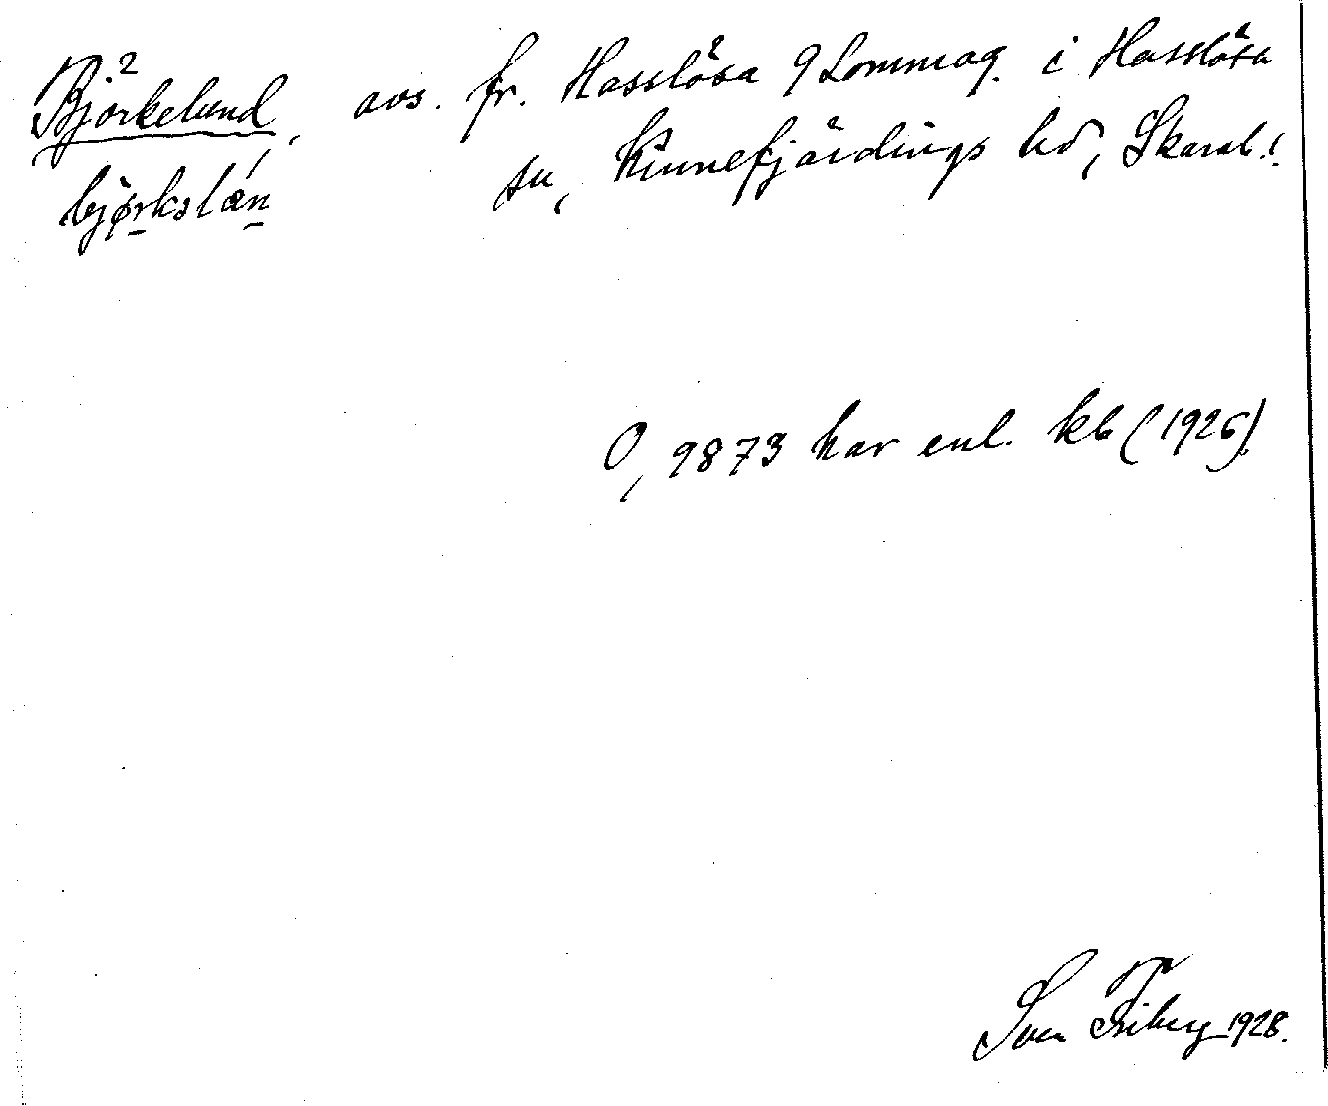 Björkelund, avs. fr. Hasslösa 9 Lommag. i Hasslösa
bjørkslæn sn, Kinnefjärdings hd, Skarab.l.
0,9873 har enl. kb (1926).
Sven Friberg 1928.